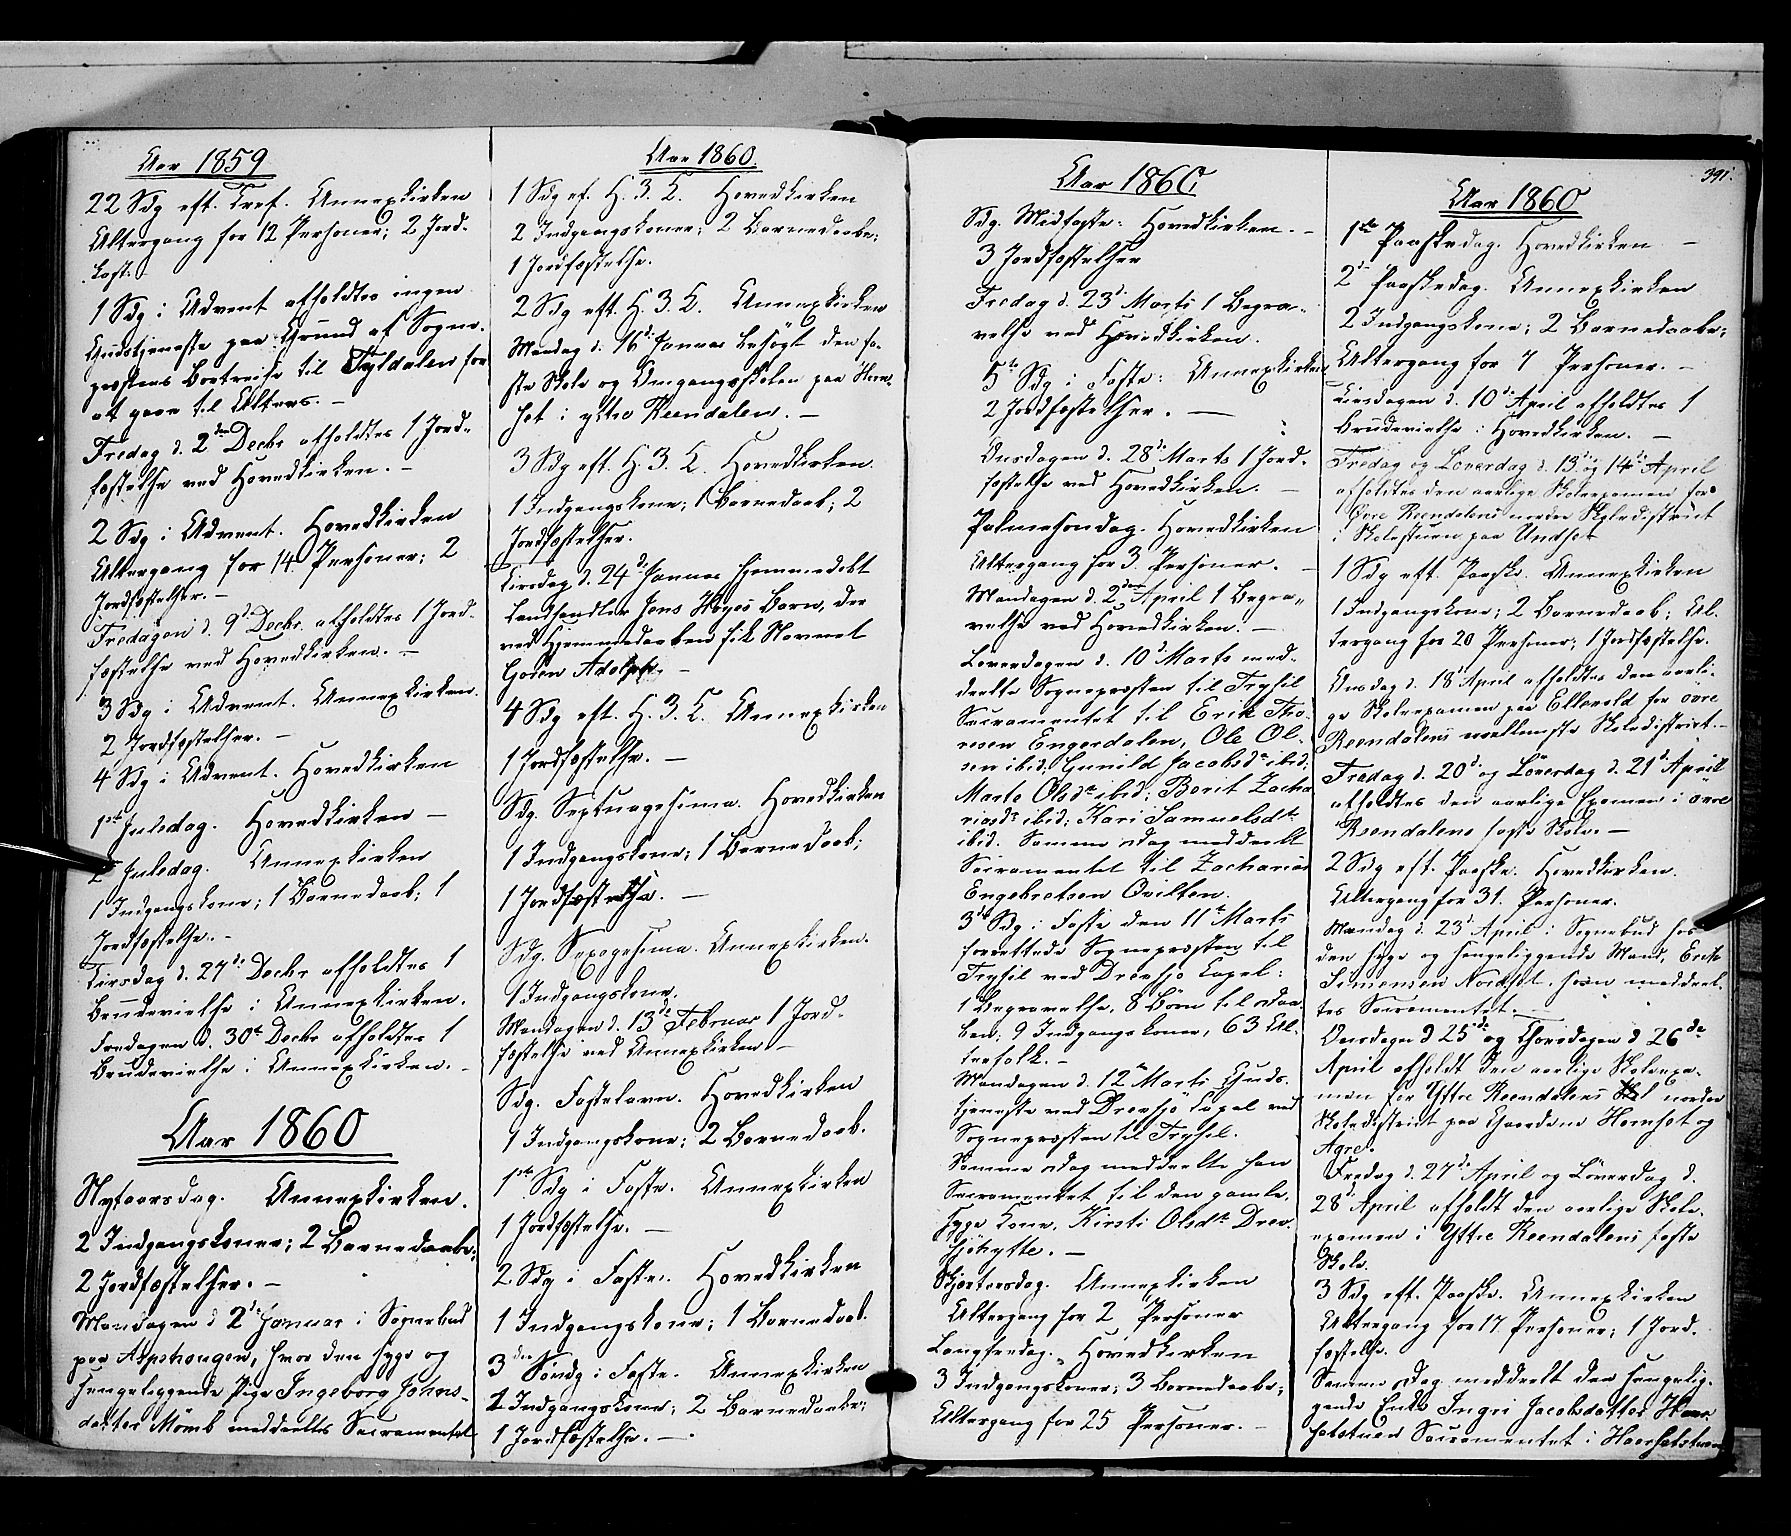 Aar 1859
22 Sdg eft. Tref. Annexkirken
Altergang for 12 Personer; 2 Jord-
kast.
1 Sdg i Advent afholdtes ingen
Gudstjeneste paa Grund af Sogne-
præstens Bortreise til Tyldalen for
at gaae til Alters. -
Fredag d. 2den Decbr afholdtes 1 Jord-
fæstelse ved Hovedkirken. -
2 Sdg i Advent. Hovedkirken
Altergang for 14 Personer; 2
Jordfæstelser. -
Fredagen d. 9d Decbr. afholdtes 1 Jord-
fæstelse ved Hovedkirken. -
3 Sdg i Advent. Annexkirken.
2 Jordfæstelser. -
4 Sdg i Advent. Hovedkirken
1ste Juledag. Hovedkirken -
2 Juledag. Annexkirken
1 Indgangskone; 1 Barnedaab; 1
Jordfæstelse. -
Tirsdag d. 27de Decbr afholdtes 1
Brudevielse i Annexkirken.
Fredagen d. 30te Decbr afholdtes 1
Brudevielse i Annexkirken. -
Aar 1860
Nytaarsdag. Annexkirken.
2 Indgangskoner; 2 Barnedaabe;
2 Jordfæstelser. -
Mandagen d 2de Januar i Sognebud
paa Aspehaugen, hvor den syge og
sengeliggende Pige Ingeborg Johns-
datter Mömb meddeeltes Sacramentet
Aar 1860.
1 Sdg ef. H. 3. K. Hovedkirken
2 Indgangskoner; 2 Barnedaabe;
1 Jordfæstelse.
2 Sdg eft. H. 3. K. Annexkirken
Mandag d. 16de Januar besögt den fa-
ste Skole og Omgangsskolen paa Horn-
set i ytre Reendalen. -
3 Sdg eft. H. 3. K. Hovedkirken.
1 Indgangskone; 1 Barnedaab; 2
Jordfæstelser.
Tirsdag d. 24de Januar hjemmedöbt
Landhandler Jens Höyes Barn, der
ved Hjemmedaaben fik Navnet
Adolph. -
4 Sdg eft. H. 3. K. Annexkirken
1 Jordfæstelse. -
Sdg. Septuagesima. Hovedkirken
1 Indgangskone; 1 Barnedaab;
1 Jordfæstelse. -
Sdg. Sexagesima. Annexkirken.
1 Indgangskone.
Mandagen d. 13de Februar 1 Jord-
fæstelse ved Annexkirken -
Sdg. Fastelavn. Hovedkirken
1 Indgangskone; 2 Barnedaab.
1ste Sdg i Faste. Annexkirken
1 Jordfæstelse. -
2 Sdg i Faste. Hovedkirken
1 Indgangskone; 1 Barnedaab.
3die Söndg i Faste. Annexkirken
1 Indgangskone; 2 Barnedaabe;
1 Jordfæstelse. -
Aar 1860.
Sdg. Midfaste. Hovedkirken. -
3 Jordfæstelser
Fredag d. 23de Marts 1 Begra-
velse ved Hovedkirken.
5te Sdg i Faste: Annexkirken
2 Jordfæstelser. -
Onsdagen d. 28de Marts 1 Jord-
fæstelse ved Hovedkirken. -
Palmesondag. Hovedkirken
Altergang for 3. Personer. -
Mandagen d. 2den April 1 Begra-
velse ved Hovedkirken. -
Löverdagen d. 10de Marts med-
deelte Sognepræsten til Trysil
Sacramentet til Erik Tho-
resen Engerdalen, Ole Ol-
sen ibid; Gunild Jacobsdtr ibid;
Marte Olsdtr ibid; Berit Zacha
riasdtr ibid; Kari Samuelsdtr
ibid. Samme Dag meddeelt
Sacramentet til Zacharias
Engebretsen Qvilten.
3die Sdg i Faste den 11te Marts
forrettede Sognepræsten til
Trysil ved Drevsjö Capel:
1 Begravelse, 8 Börn til Daa-
ben; 9 Indgangskoner, 63 Al-
terfolk. -
Mandagen d. 12te Marts Guds-
tjeneste ved Drevsjö Capel ved
Sognepræsten til Trysil.
Samme Dag meddeelte han
Sacramentet til den gamle,
syge Kone, Kirsti Olsdtr Drev-
sjöhytte. -
Skjærtorsdag. Annexkirken
Altergang for 2 Personer
Langfredag. Hovedkirken
3 Indgangskoner; 3 Barnedaabe;
Altergang for 25 Personer. -
391.
Aar 1860
1ste Paaskedag. Hovedkirken -
2de Paaskedag. Annexkirken
2 Indgangskone; 2 Barnedaabe;
Altergang for 7 Personer. -
Tirsdagen d. 10de April afholdtes 1
Brudevielse i Hovedkirken. -
Fredag og Löverdag d. 13de og 14de April
afholdtes den aarlige Skoleexamen for
Övre Reendalens nordre Skoledistrict
i Skolestuen paa Undset
1 Sdg eft. Paaske. Annexkirken
1 Indgangskone; 2 Barnedaab; Al-
tergang for 20 Personer; 1 Jordfæstelse.
Onsdag d. 18de April afholdtes den aarli-
ge Skoleexamen paa Ellevold for övre
Reendalens mellemste Skoledistrict. -
Fredag d. 20de og Löverdag d. 21de April
afholdtes den aarlige Examen i övre
Reendalens faste Skole. -
2 Sdg eft. Paaske. Hovedkirken.
Altergang for 31. Personer.
Mandag d. 23de April i Sognebud hos
den syge og sengeliggende Mand, Erik
Simensen Nordset, som meddeel-
tes Sacramentet. -
Onsdagen d 25de og Thorsdagen d 26de
April afholdt den aarlige Skoleexa-
men for Yttre Reendalens nordre
Skoledistrict paa Gaardene Hornset og
Agre.
Fredag d. 27de April og Löverdag d.
28de April afholdt den aarlige Skole-
examen i Yttre Reendalens faste
Skole.
3 Sdg eft. Paaske. Annexkirken
Altergang for 17 Personer; 1 Jord-
fæstelse.
Samme Dag meddeelt den sengelig-
gende Enke Ingri Jacobsdatter Haar-
setstuen Sacramentet i Haarsetstuen